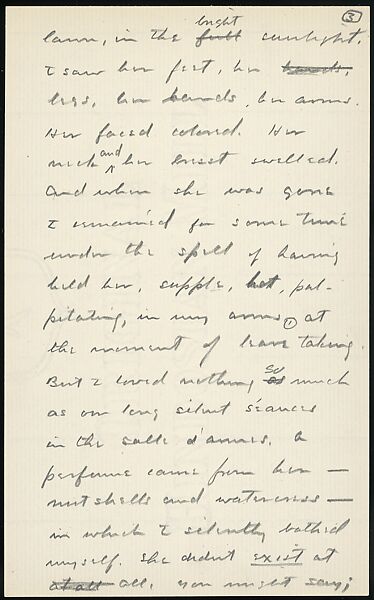 3
bright
lawn, in the full sunlight.
I saw her feet, her hands,
legs, her hands, her arms.
Her faced colored. Her
neck and her breast swelled.
And when she was gone
I remained for some time
under the spell of having
held her, supple, hot, pal-
pitating, in my arms 1 at
the moment of leave taking.
But I loved nothing so as much
as our long silent séances
in the salle d'armes. A
perfume came from her —
nutshells and watercress —
in which I silently bathed
myself. She didn't exist at
at all all. You might say;